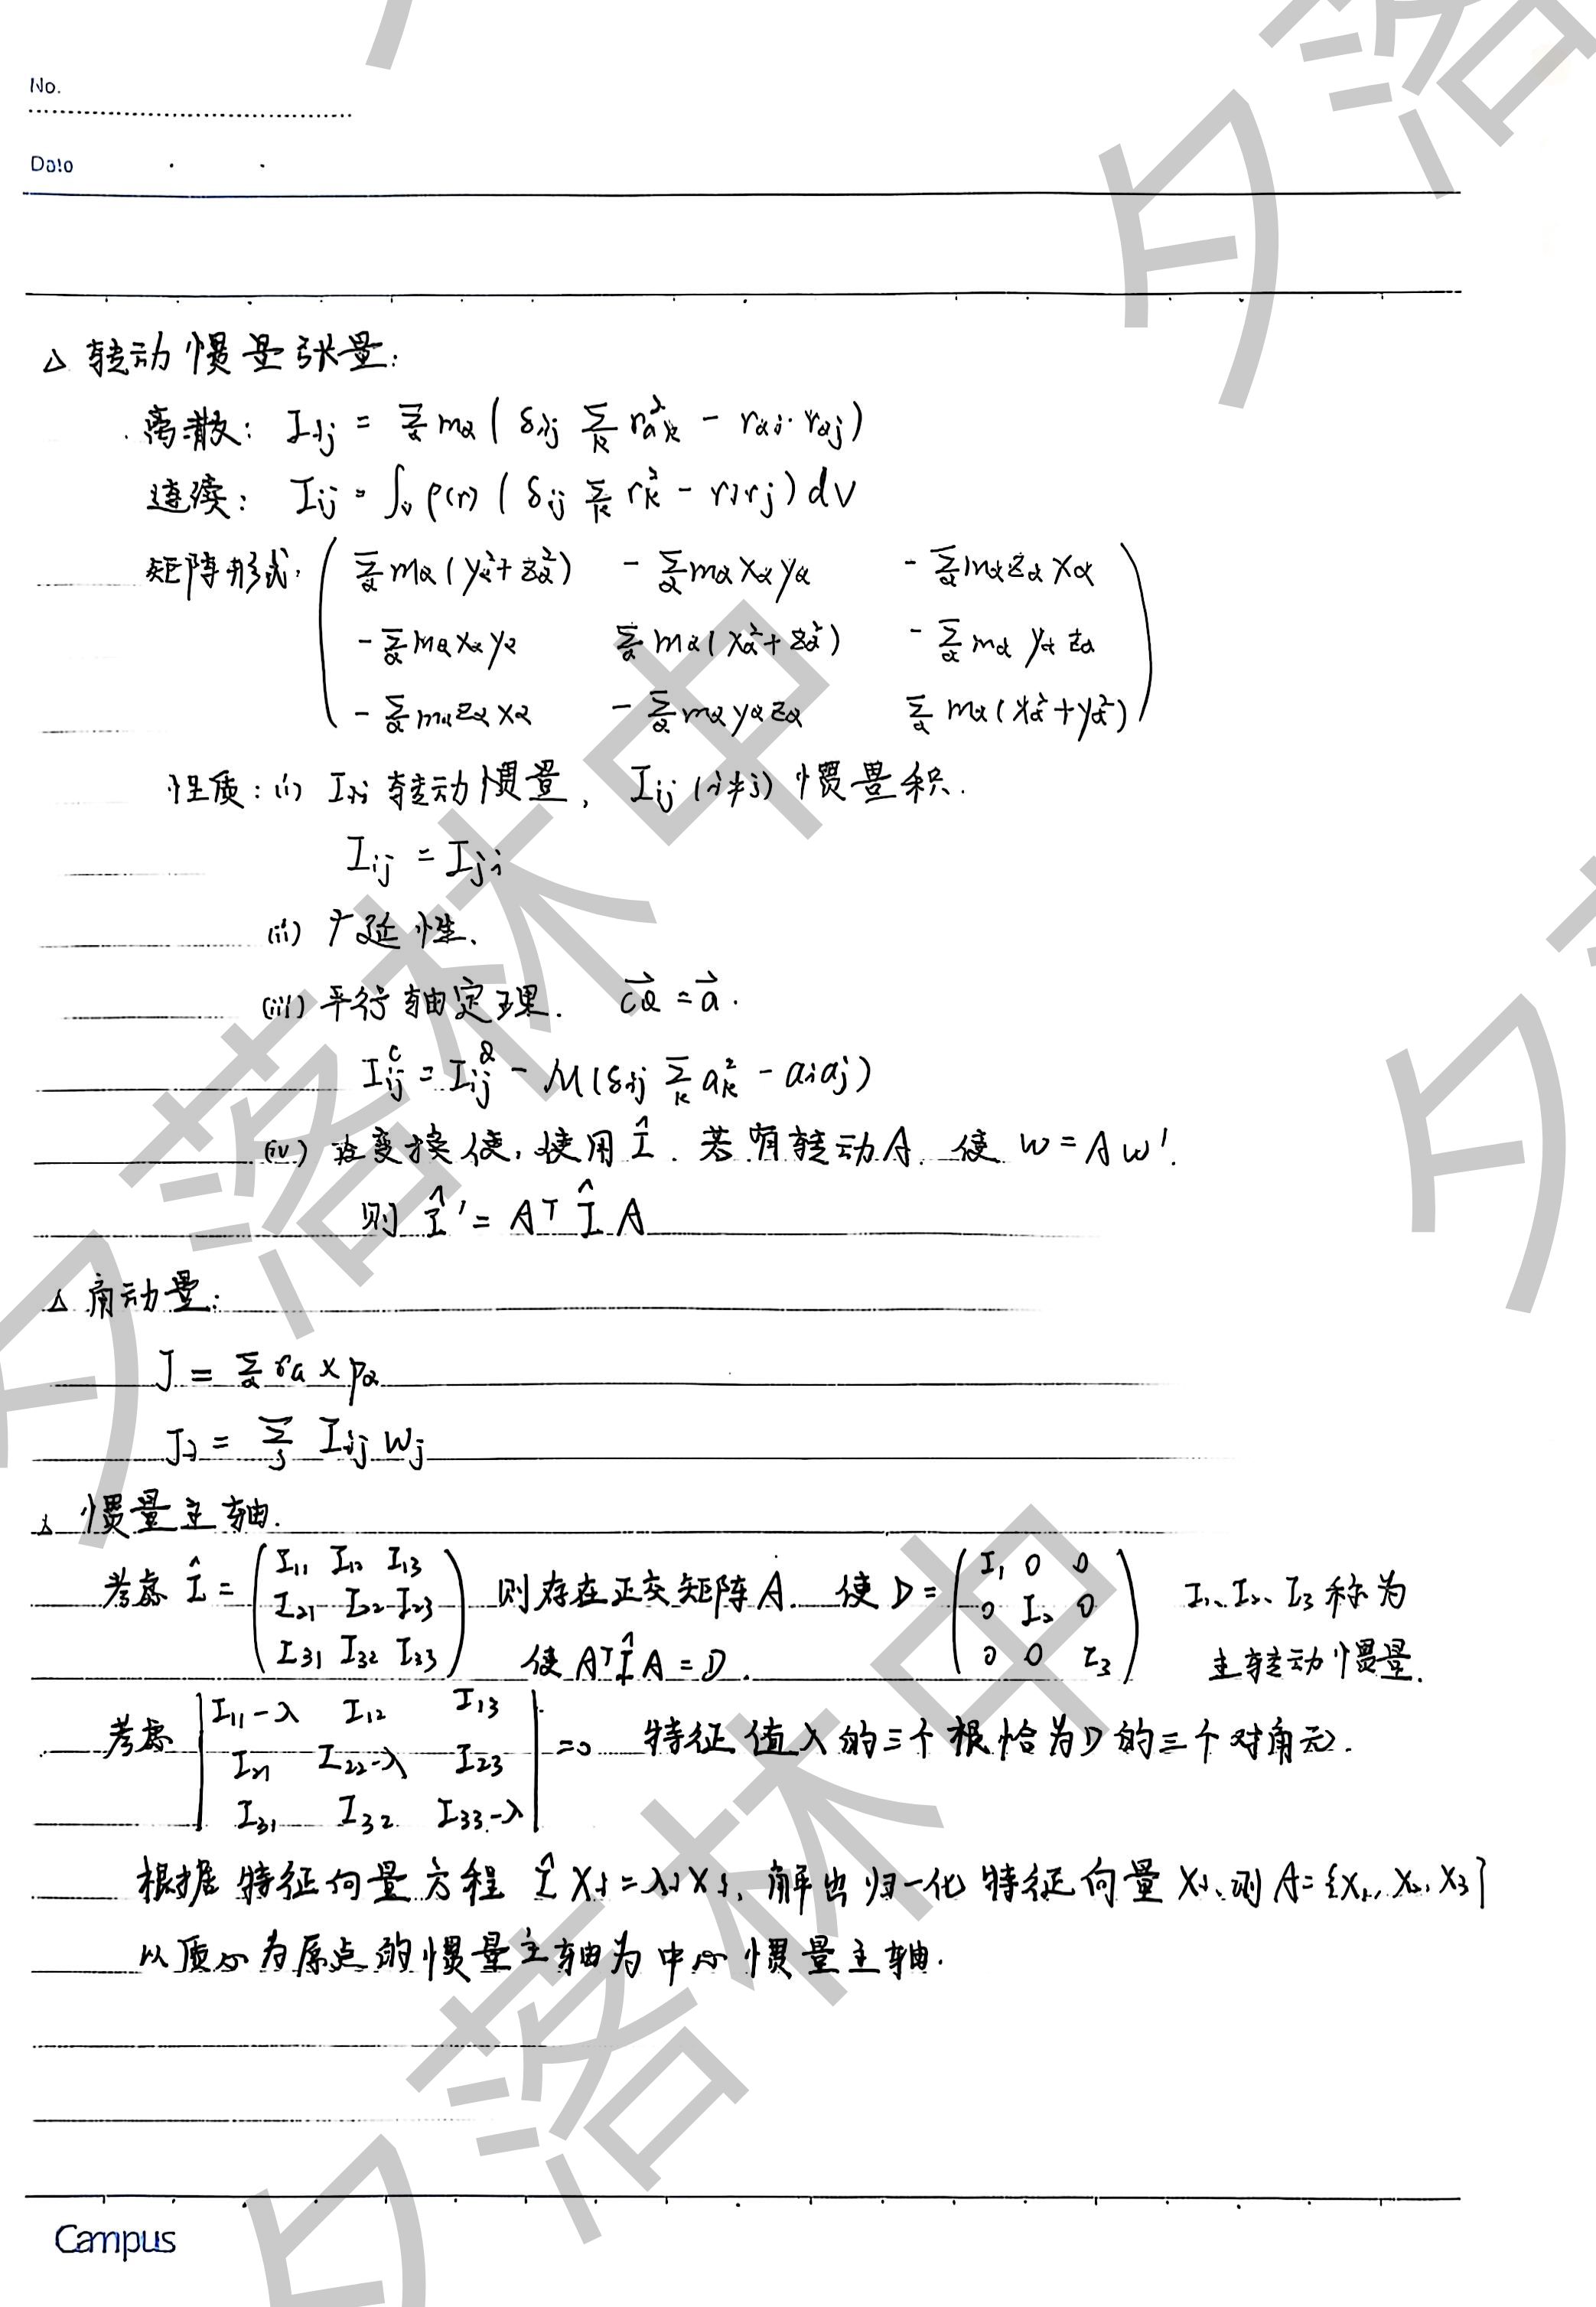 No.
Date
△ 转动惯量张量:
离散: Iij = Σα mα ( δij Σk rαk² - rαi·rαj )
连续: Iij = ∫v ρ(r) ( δij Σk rk² - rirj ) dV
矩阵形式: ( Σα mα(yα²+zα²)  -Σα mα xα yα  -Σα mα zα xα
-Σα mα xα yα  Σα mα(xα²+zα²)  -Σα mα yα zα
-Σα mα zα xα  -Σα mα yα zα  Σα mα(xα²+yα²) )
性质: (i) Iii 转动惯量, Iij (i≠j) 惯量积.
Iij = Iji
(ii) 广延性.
(iii) 平行轴定理. CQ→ = a→.
Iij^C = Iij^Q - M(δij Σk ak² - aiaj)
(iv) 变换 使, 使用 Î. 若有转动A. 使 w = Aw'.
则 Î' = A^T Î A
△ 角动量:
J = Σα rα × pα
Ji = Σj Iij wj
△ 惯量主轴.
考虑 Î = ( I11 I12 I13
I21 I22 I23
I31 I32 I33 ) 则存在正交矩阵A. 使 D = ( I1 0 0
0 I2 0
0 0 I3 ) I1、I2、I3 称为
使 A^T Î A = D. 主转动惯量.
考虑 | I11-λ I12 I13
I21 I22-λ I23
I31 I32 I33-λ | =0 特征值λ的三个根恰为D的三个对角元.
根据特征向量方程 Î Xi = λi Xi, 解出归一化特征向量 Xi, 则 A = {X1, X2, X3}
以质心为原点的惯量主轴为中心惯量主轴.
Campus
夕落林中
夕落林中
夕落
夕落